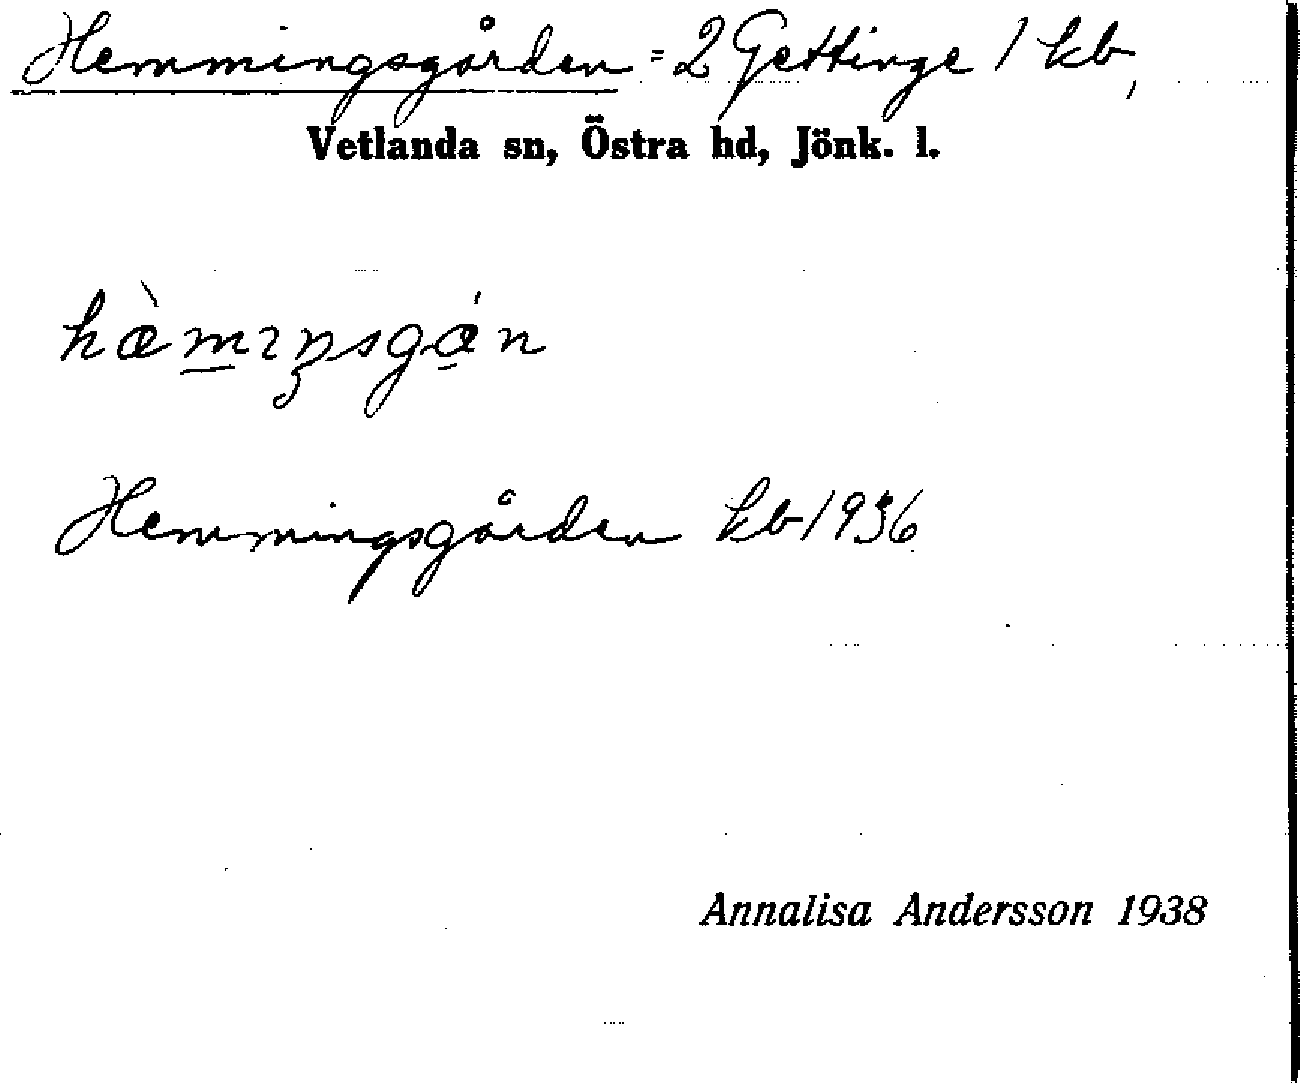 Hemmingsgården = 2 Gettinge / kb,
Vetlanda sn, Östra hd, Jönk. l.
Hemmingsgården kb 1936
Annalisa Andersson 1938